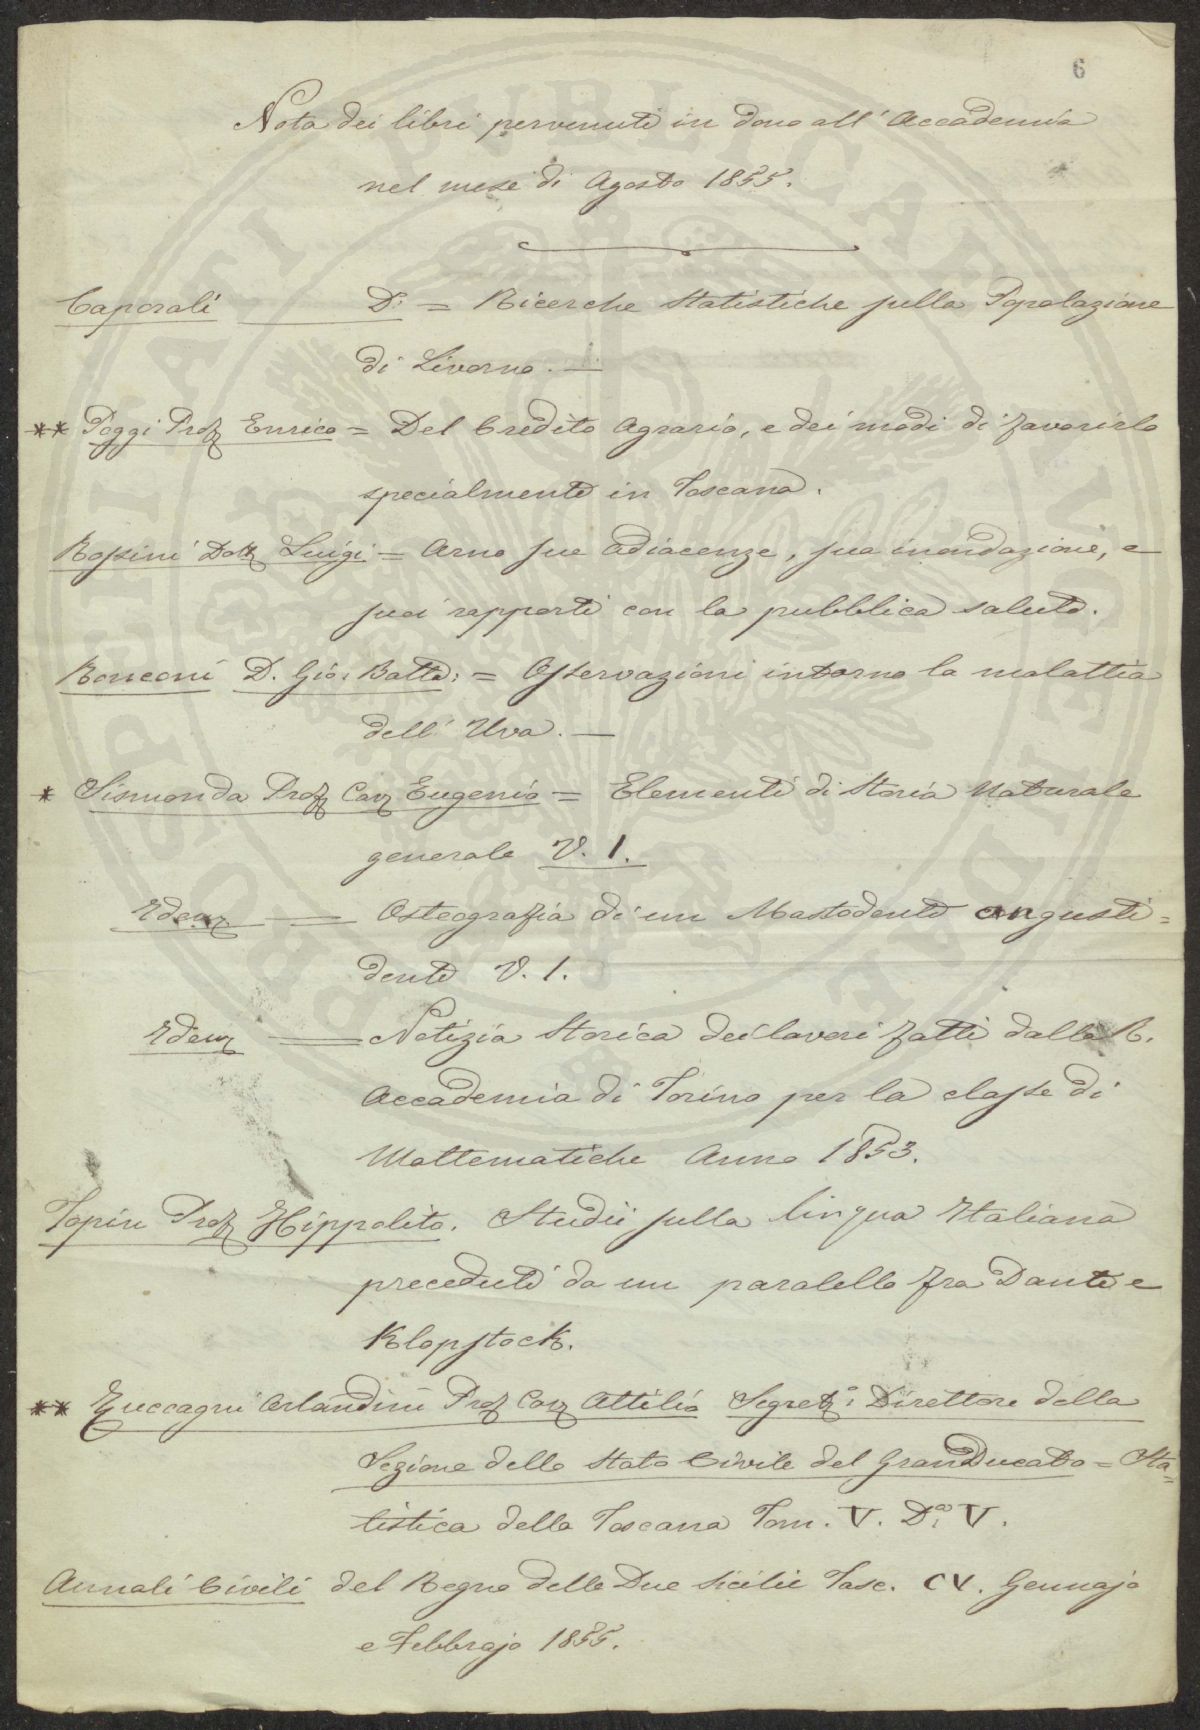 6
Nota dei libri pervenuti in dono all'Accademia
nel mese di Agosto 1855.
Caporali D: = Ricerche Statistiche sulla Popolazione
di Livorno. —
** Poggi Prof Enrico = Del Credito Agrario, e dei modi di favorirlo
specialmente in Toscana.
Rossini Dott Luigi = Arno sue adiacenze, sua inondazione, e
suoi rapporti con la pubblica salute.
Ronconi D. Gio: Batta: = Osservazioni intorno la malattia
dell'Uva. —
* Sismonda Prof Cav Eugenio = Elementi di Storia Naturale
generale V. 1.
Idem — Osteografia di un Mastodonte angusti=
dente V. 1.
Idem — Notizia Storica dei lavori fatti dalla R.
Accademia di Torino per la classe di
Mattematiche Anno 1853.
Topin Prof Hippolito. Studii sulla lingua Italiana
preceduti da un paralello fra Dante e
Klopstock.
** Zuccagni Orlandini Prof Cav Attilio Segret:o Direttore della
Sezione dello Stato Civile del GranDucato = Sta=
tistica della Toscana Tom. V. D:o V.
Annali Civili del Regno delle Due Sicilie Fasc. CV. Gennajo
e Febbrajo 1855.
PROSPERITATI PUBLICAE AUGENDAE